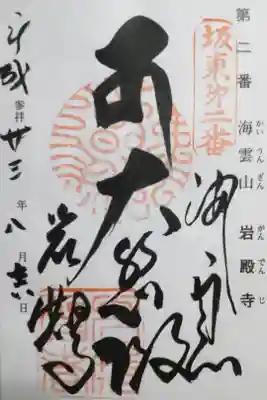 第二番 海雲山 岩殿寺
かいうんざん がんでんじ
坂東第二番
海雲山
大悲殿
岩殿寺
平成 参拝 廿三 年 八 月 日